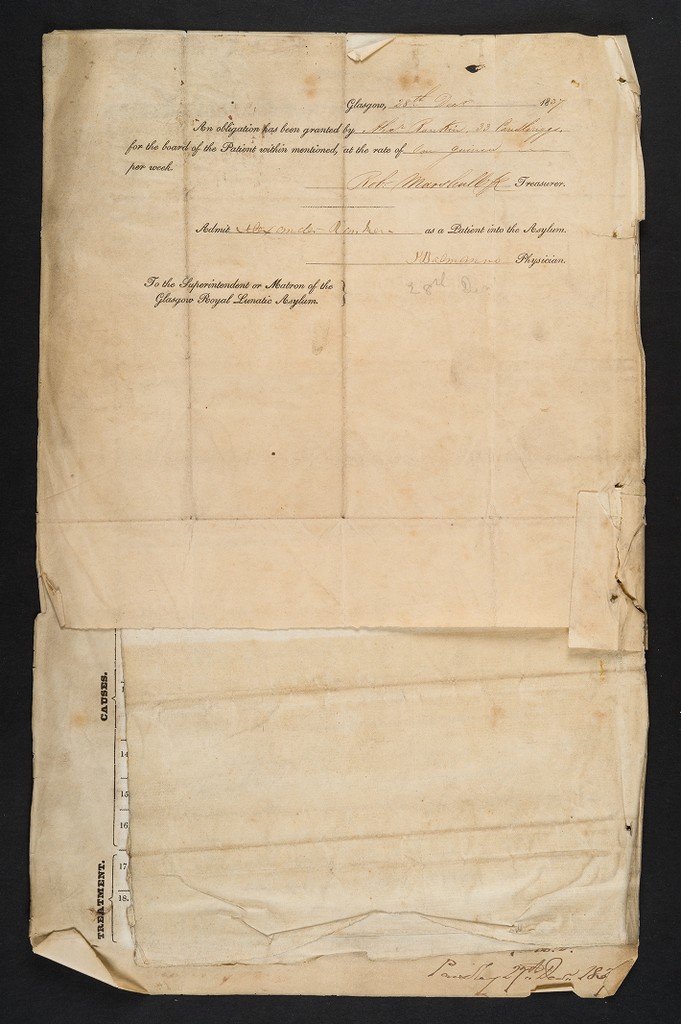 Glasgow, 28th Decr 1837
An obligation has been granted by Rankin, 33
for the board of the Patient within mentioned, at the rate of guinea
per week.
Robt Marshall Treasurer.
Admit Alexander Rankin as a Patient into the Asylum.
Balmanno Physician.
28th Dec
To the Superintendent or Matron of the
Glasgow Royal Lunatic Asylum.
CAUSES.
14
15
16
TREATMENT.
17
18.
27th Decr 183